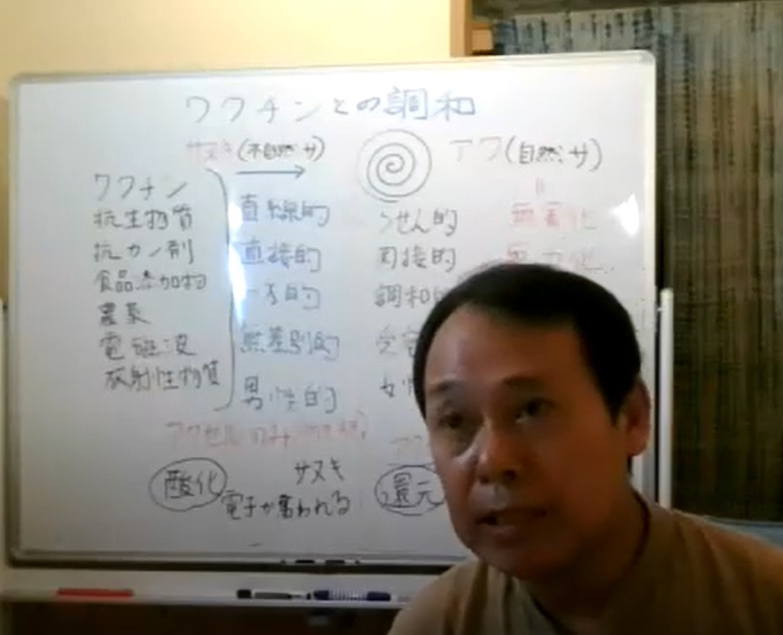 ワクチンとの調和
サヌキ(不自然サ)
アワ(自然サ)
ワクチン
抗生物質
抗ガン剤
食品添加物
農薬
電磁波
放射性物質
直線的
直接的
一方的
無差別的
男性的
らせん的
間接的
調和的
無害化
無力化
アクセルのみ
酸化
サヌキ
電子が奪われる
還元